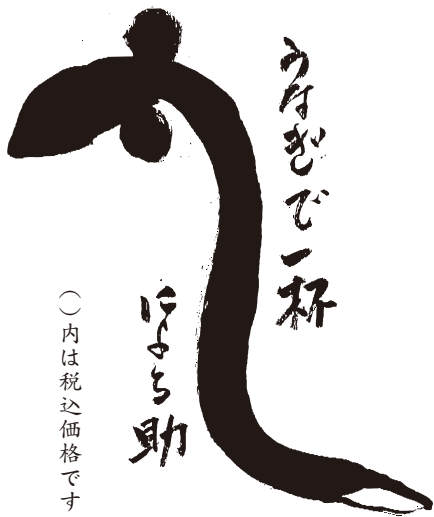 うなぎで一杯
によろ助
( )内は税込価格です